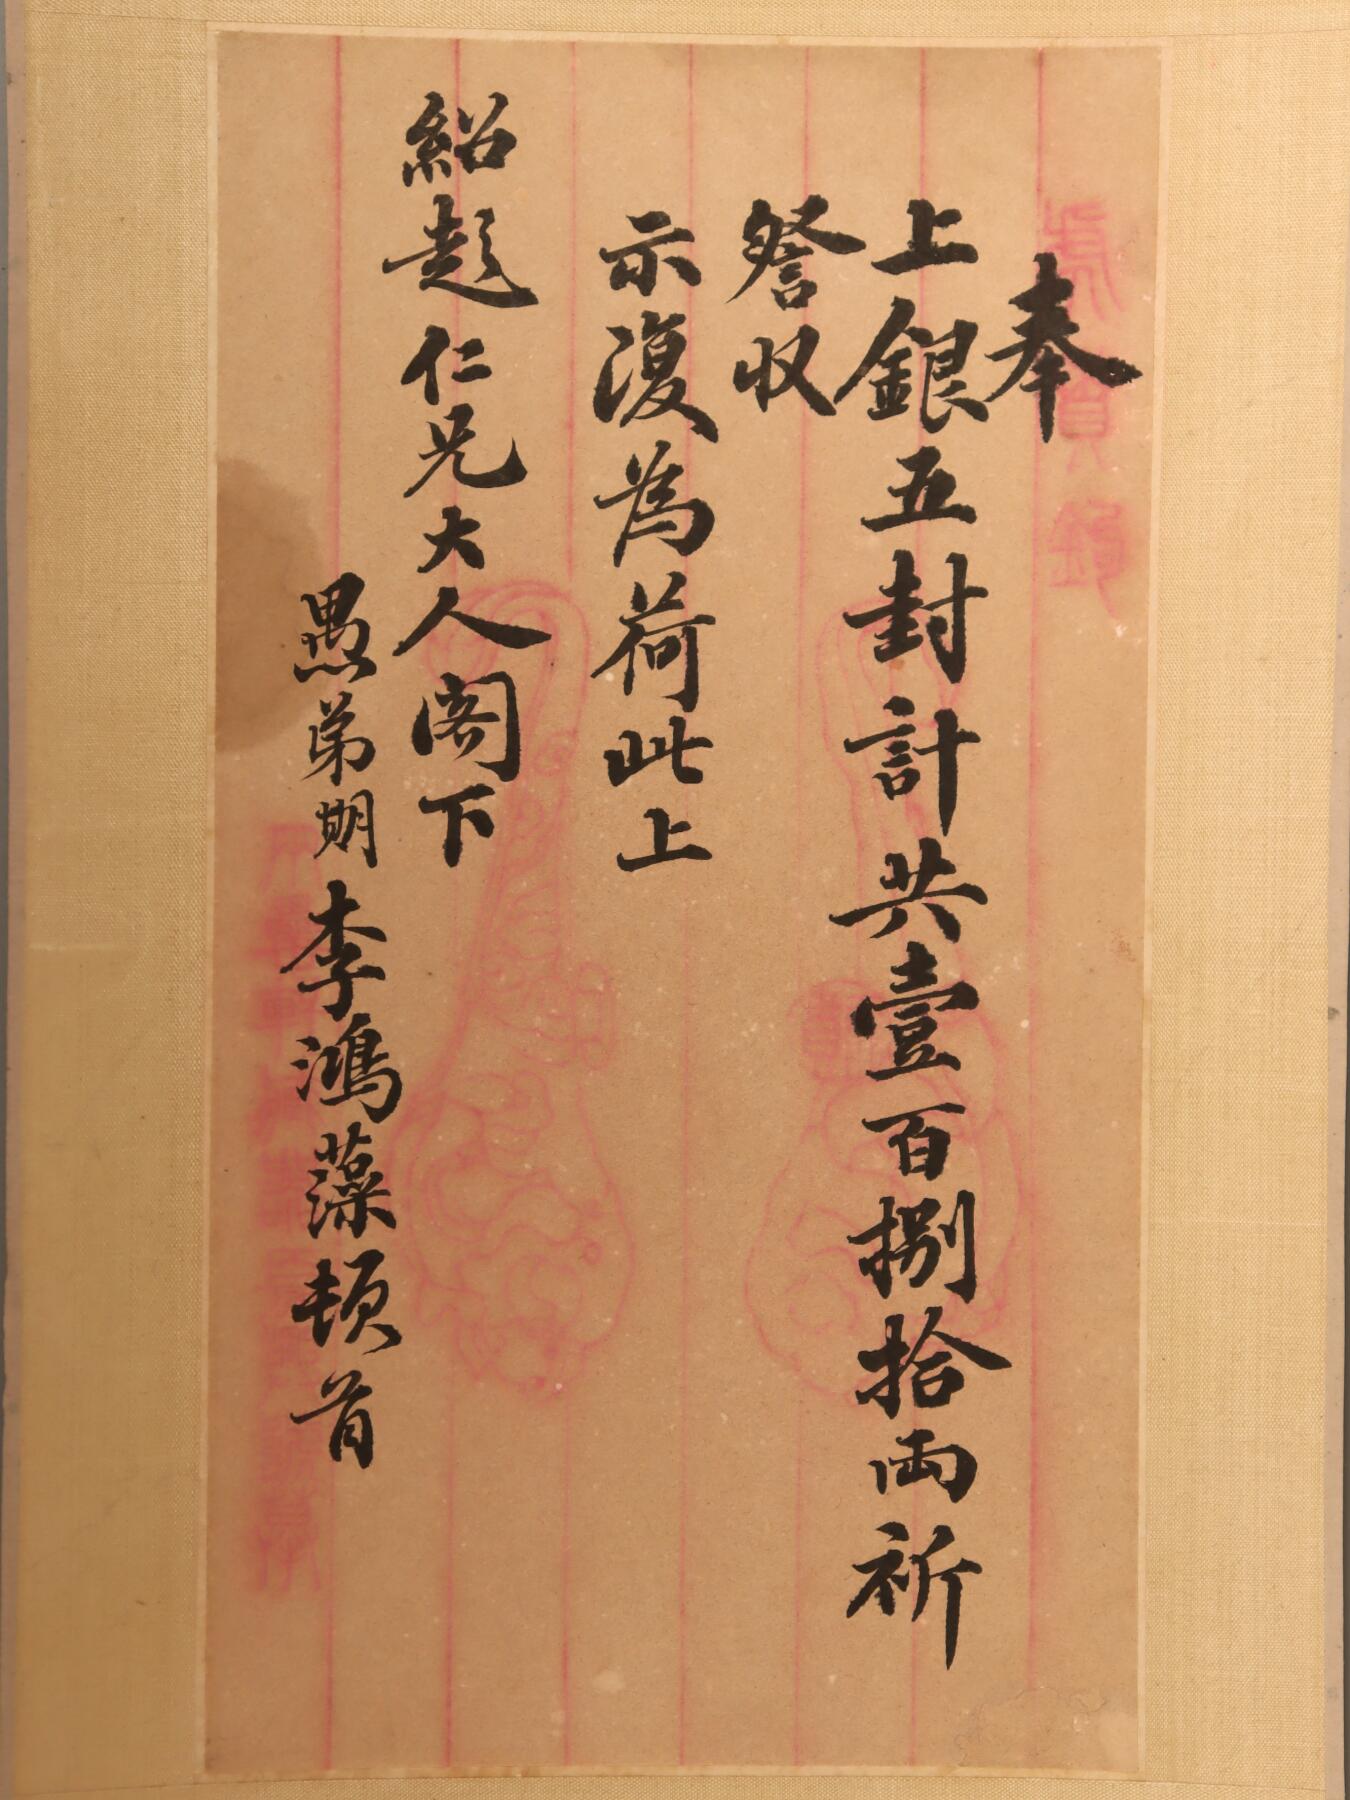 奉
上銀五封計共壹百捌拾両祈
詧収
示復為荷此上
紹彭仁兄大人閣下
愚弟期李鴻藻頓首